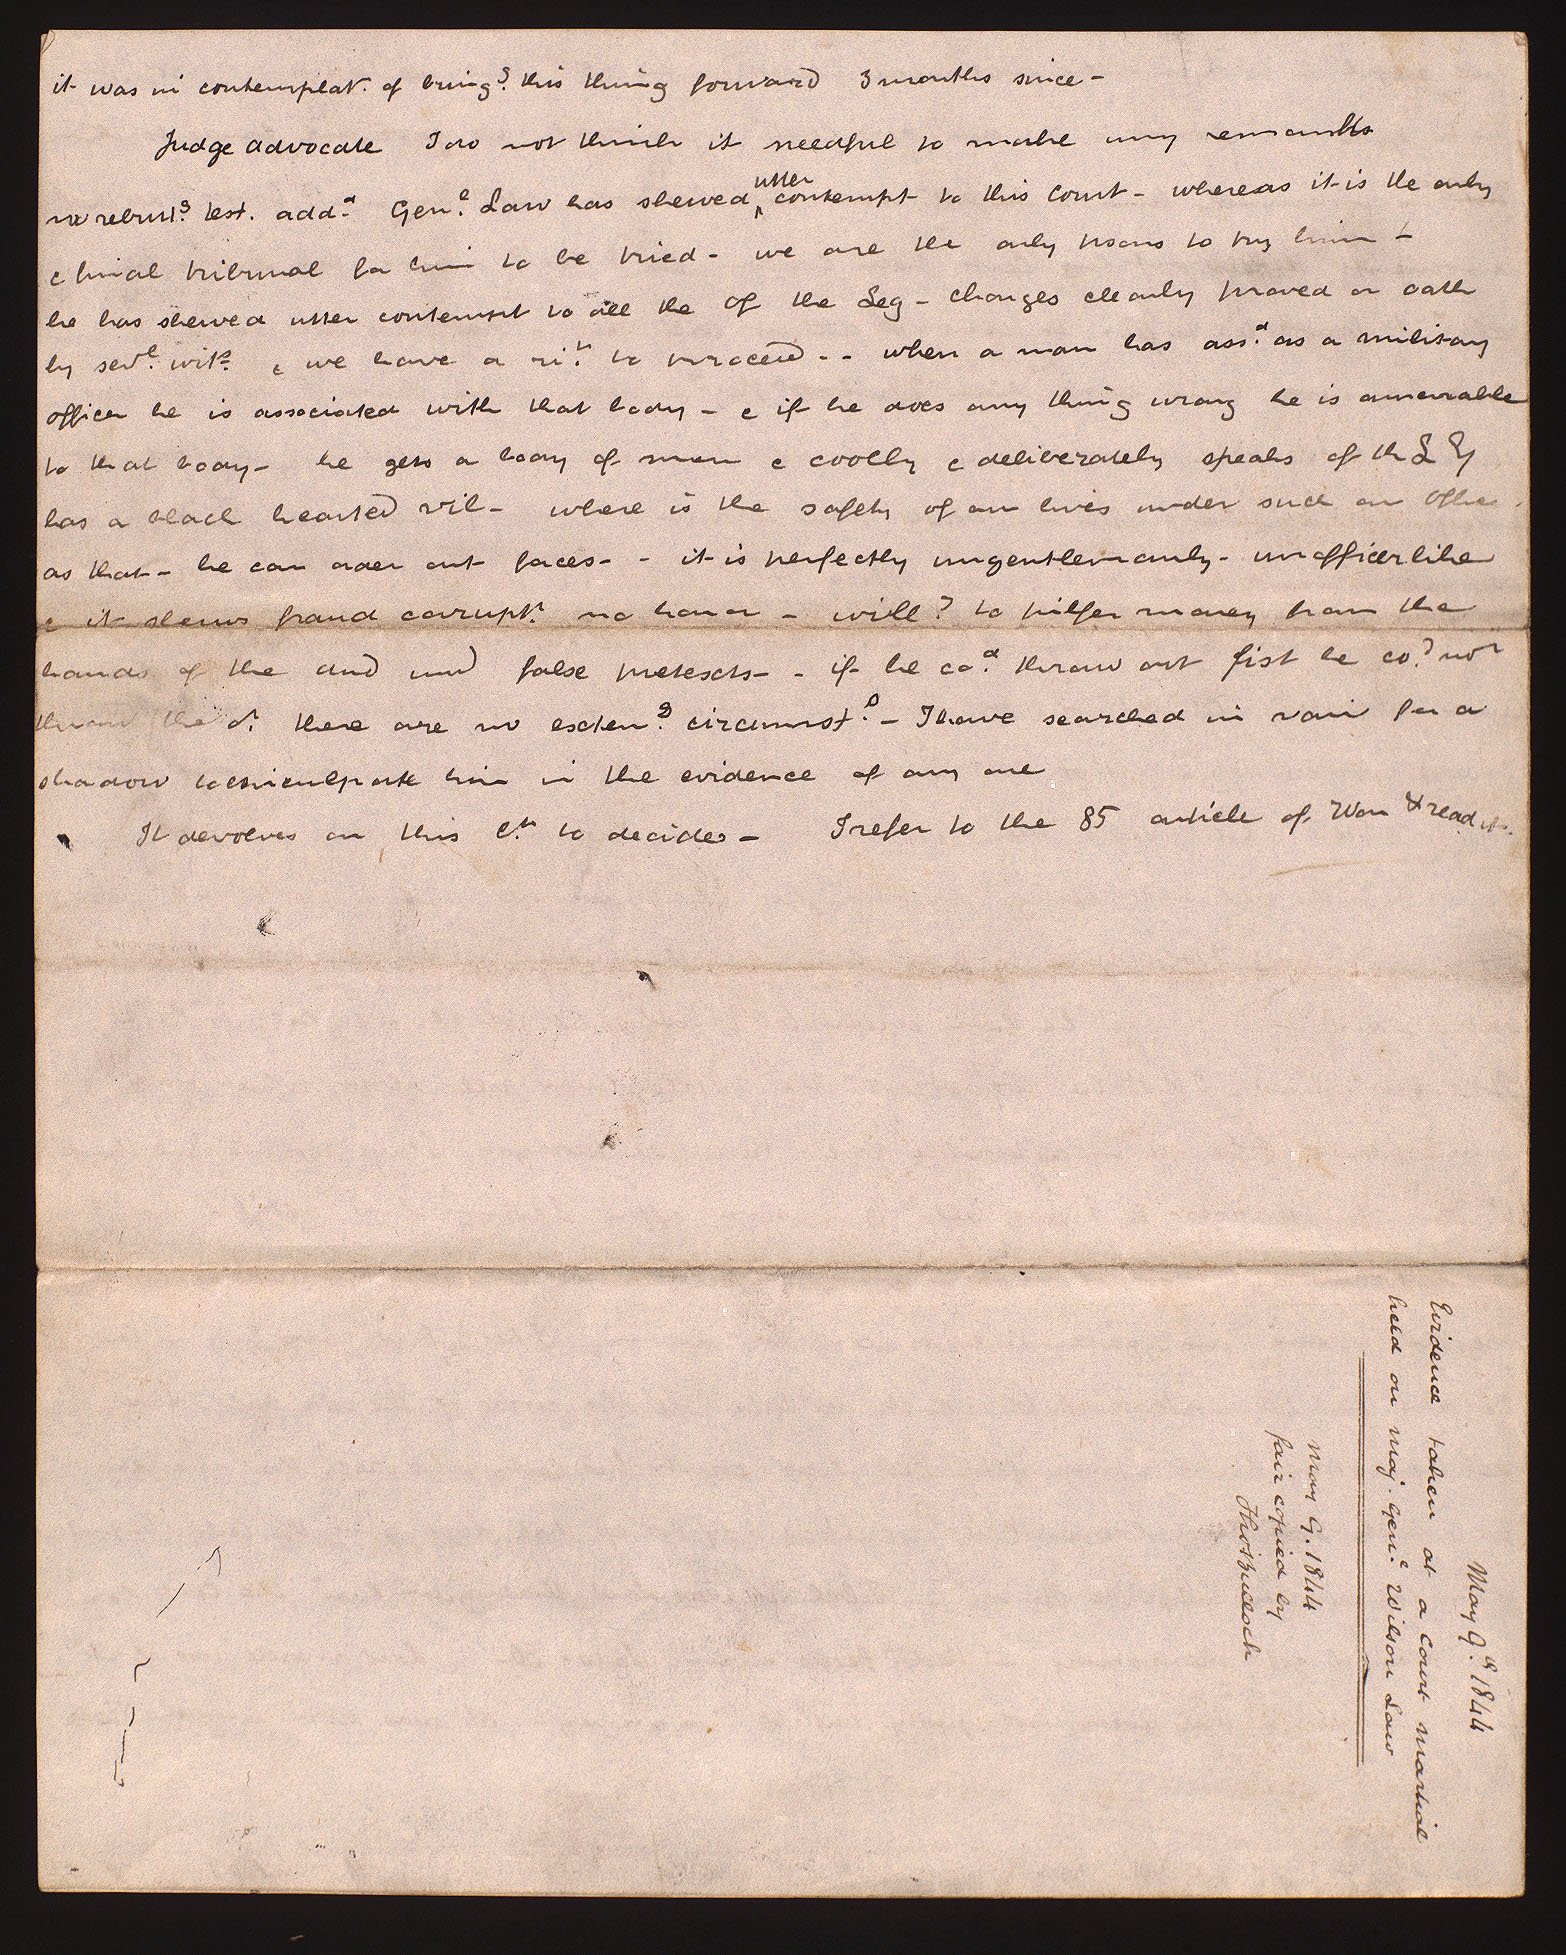 it was in contemplat.n of bring.g this thing forward 3 months since -
Judge Advocate I do not think it needful to make any remarks
no rebutt.g test. add.d Gen.l Law has shewed ^utter contempt to this Court - whereas it is the only
& final tribunal for him to be tried - we are the only psons to try him -
he has shewed utter contempt to all the Of the Leg - charges clearly proved on oath
by sev.l wit.s & we have a ri.t to proceed - - when a man has ass.d as a military
officer he is associated with that body - & if he does any thing wrong he is amenable
to that body - he gets a body of men & coolly & deliberately speaks of the L G
has a black hearted vil - where is the safety of our lives under such an Office
as that - he can order out forces - - it is perfectly ungentlemanly - unofficerlike
& it shews fraud corrupt.n no honor - will.g to pilfer money from the
hands of the and und false pretexts - - if he co.d throw out fist he co.d not
throw the o.r there are no exten.g circumst.s - I have searched in vain for a
shadow to exculpate him in the evidence of any one
It devolves on this C.t to decide - I refer to the 85 article of War & read it.
May 9.th 1844
Evidence taken at a Court martial
held on Maj. Gen.l Wilson Law
May 9. 1844
fair copied by
Tho.s Bullock